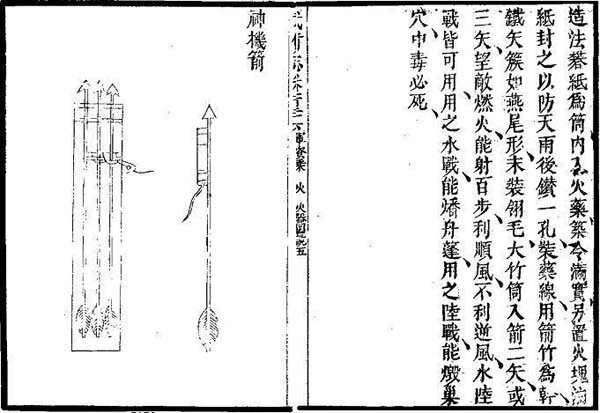 造法卷紙為筒內火藥築令滿實另置火塊油
紙封之以防天雨後鑚一孔裝藥線用箭竹為幹
鐵矢簇如燕尾形末裝翎毛大竹筒入箭二矢或
三矢望敵燃火能射百步利順風不利逆風水陸
戰皆可用用之水戰能燔舟蓬用之陸戰能燬巢
穴中毒必死
武備志卷百二六 軍資乘 火 火器圖說五
神機箭